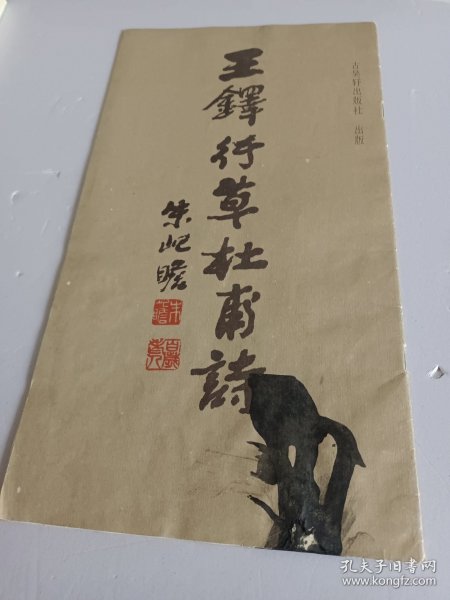 古吴轩出版社 出版
王鐸行草杜甫詩
朱屺瞻
孔夫子旧书网
www.kongfz.com